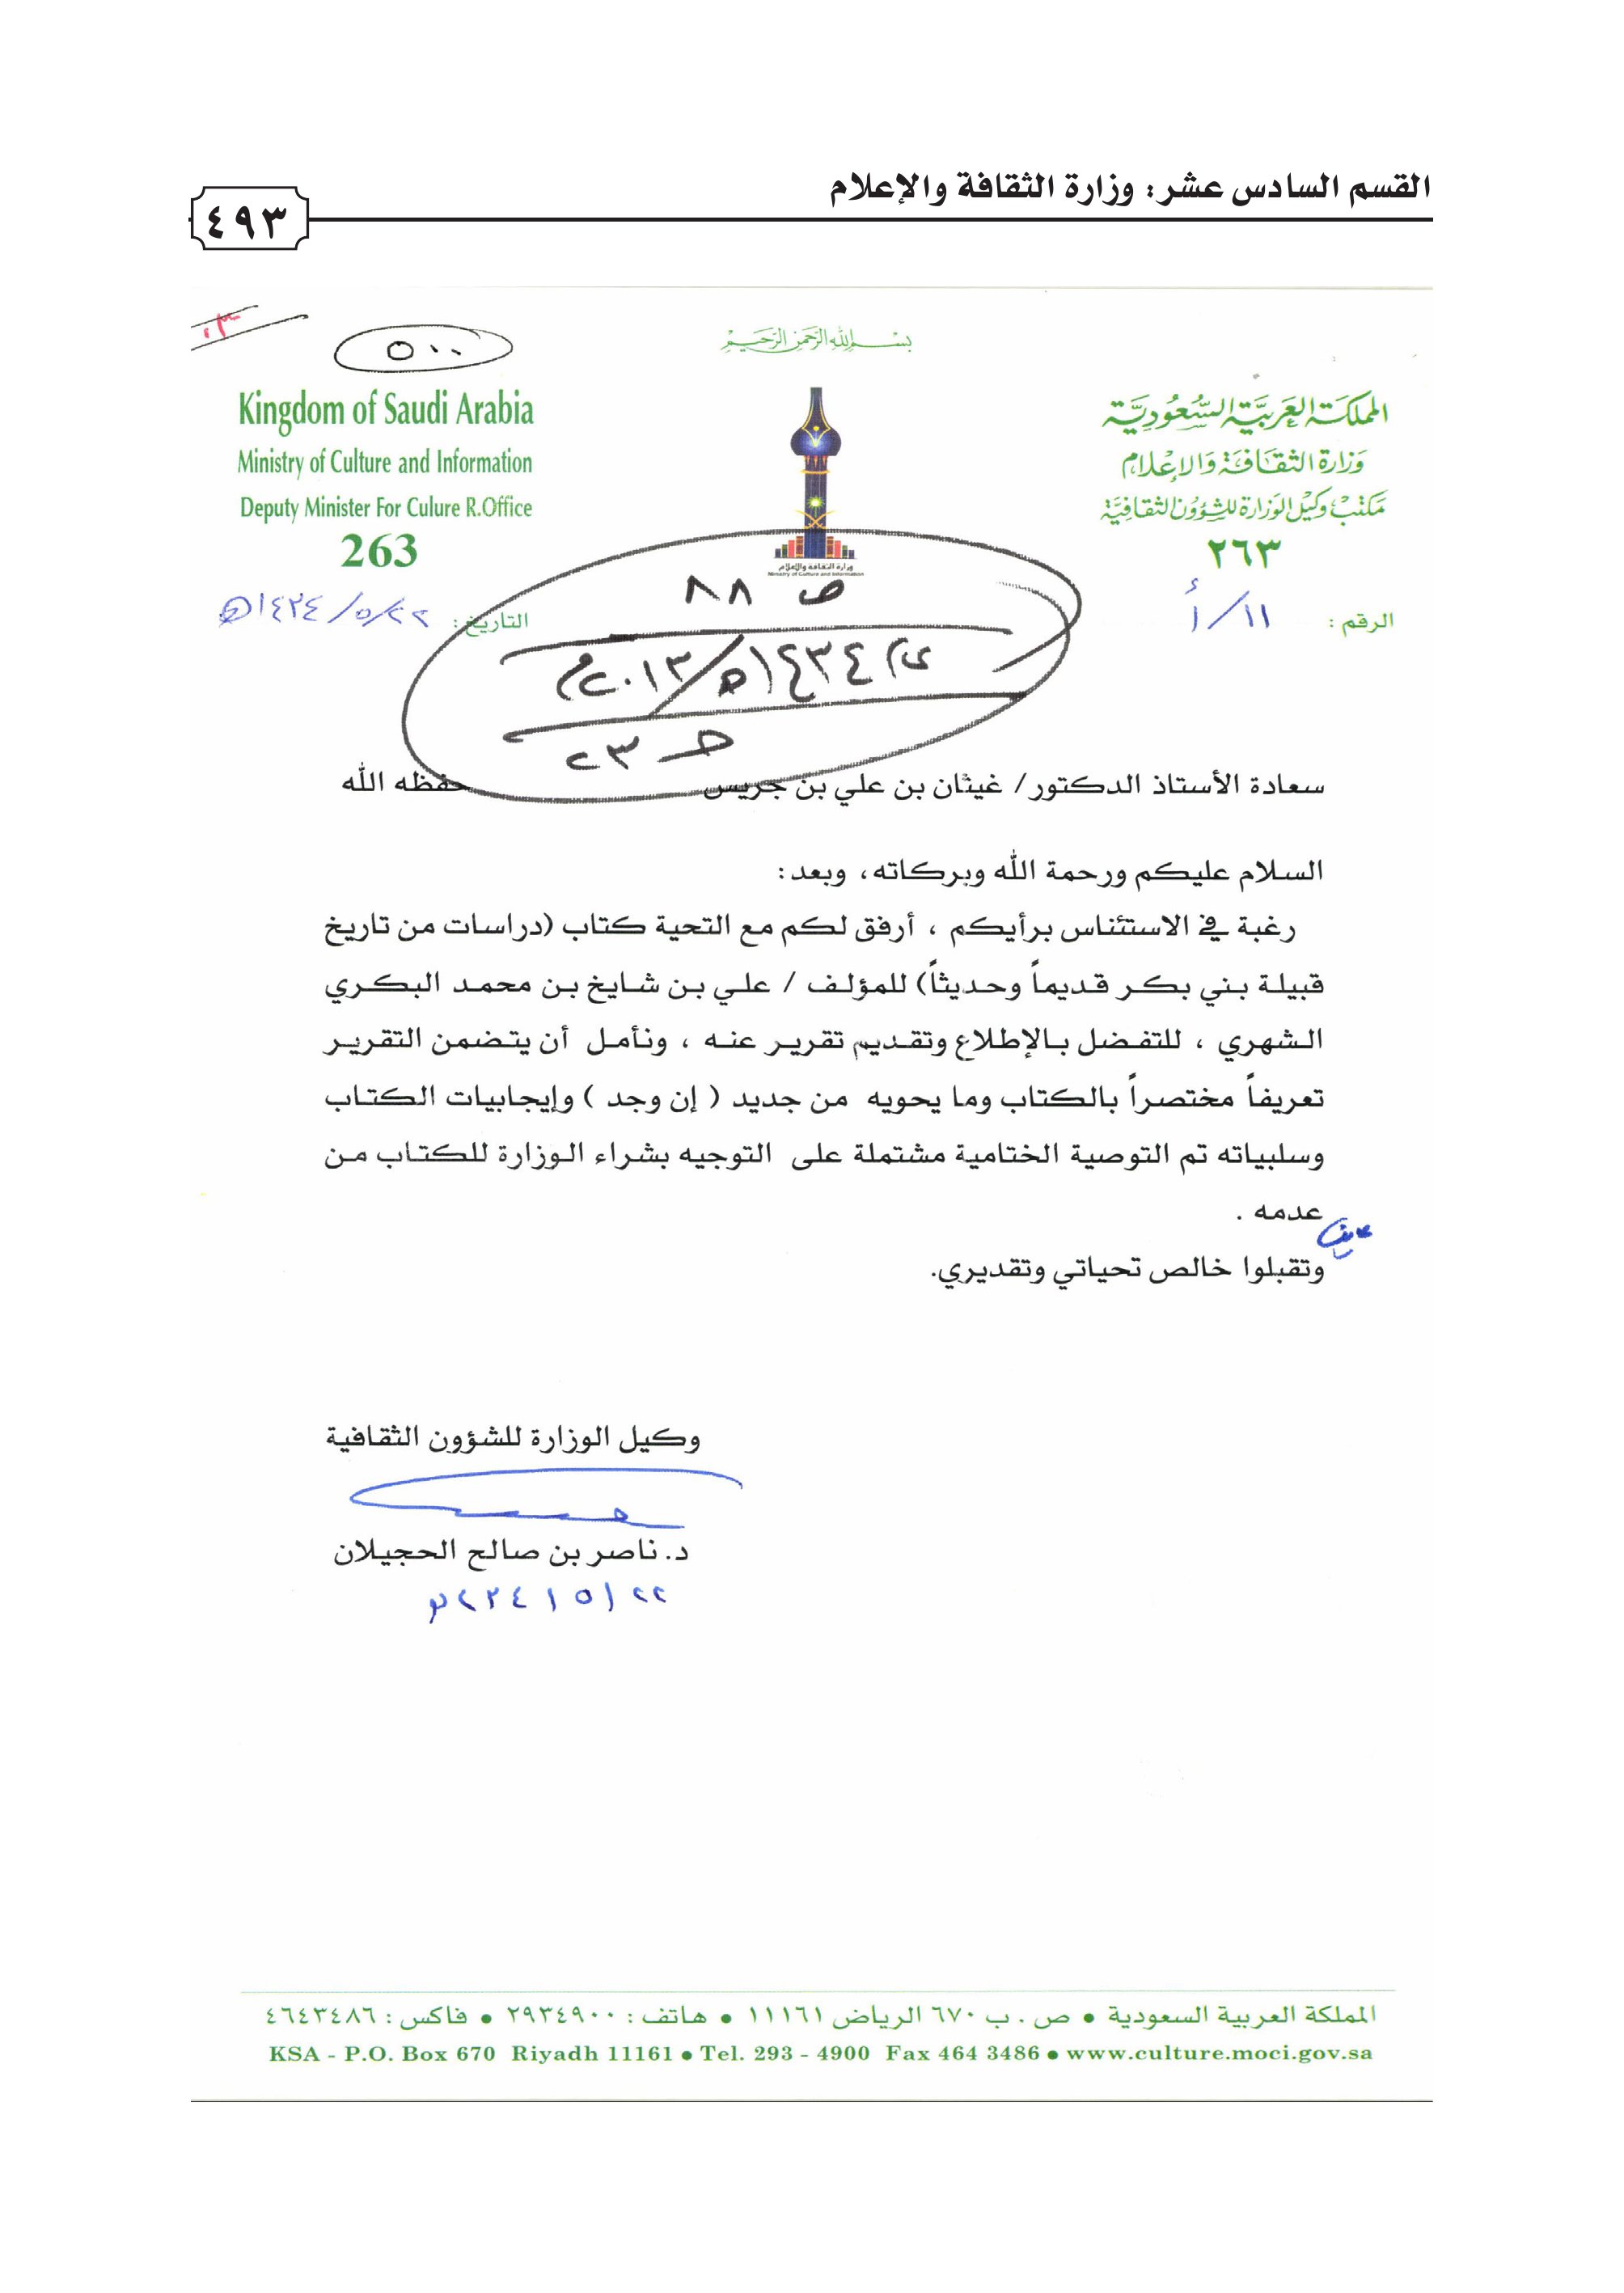 القسم السادس عشر: وزارة الثقافة والإعلام
٤٩٣
٥٠٠
بسم الله الرحمن الرحيم
المملكة العربية السعودية
وزارة الثقافة والإعلام
مكتب وكيل الوزارة للشؤون الثقافية
٢٦٣
الرقم : ١١/أ
Kingdom of Saudi Arabia
Ministry of Culture and Information
Deputy Minister For Culure R.Office
263
التاريخ : ٢٢/٥/١٤٣٤هـ
وزارة الثقافة والإعلام
Ministry of Culture and Information
ص ٨٨
١٤٣٤هـ/٢٠١٣م
حـ ٢٣
سعادة الأستاذ الدكتور/ غيثان بن علي بن جريس حفظه الله
السلام عليكم ورحمة الله وبركاته، وبعد:
رغبة في الاستئناس برأيكم ، أرفق لكم مع التحية كتاب (دراسات من تاريخ
قبيلة بني بكر قديماً وحديثاً) للمؤلف / علي بن شايخ بن محمد البكري
الشهري ، للتفضل بالإطلاع وتقديم تقرير عنه ، ونأمل أن يتضمن التقرير
تعريفاً مختصراً بالكتاب وما يحويه من جديد ( إن وجد ) وإيجابيات الكتاب
وسلبياته تم التوصية الختامية مشتملة على التوجيه بشراء الوزارة للكتاب من
عدمه .
وتقبلوا خالص تحياتي وتقديري.
وكيل الوزارة للشؤون الثقافية
د. ناصر بن صالح الحجيلان
المملكة العربية السعودية • ص . ب ٦٧٠ الرياض ١١١٦١ • هاتف : ٢٩٣٤٩٠٠ • فاكس : ٤٦٤٣٤٨٦
KSA - P.O. Box 670 Riyadh 11161 • Tel. 293 - 4900 Fax 464 3486 • www.culture.moci.gov.sa